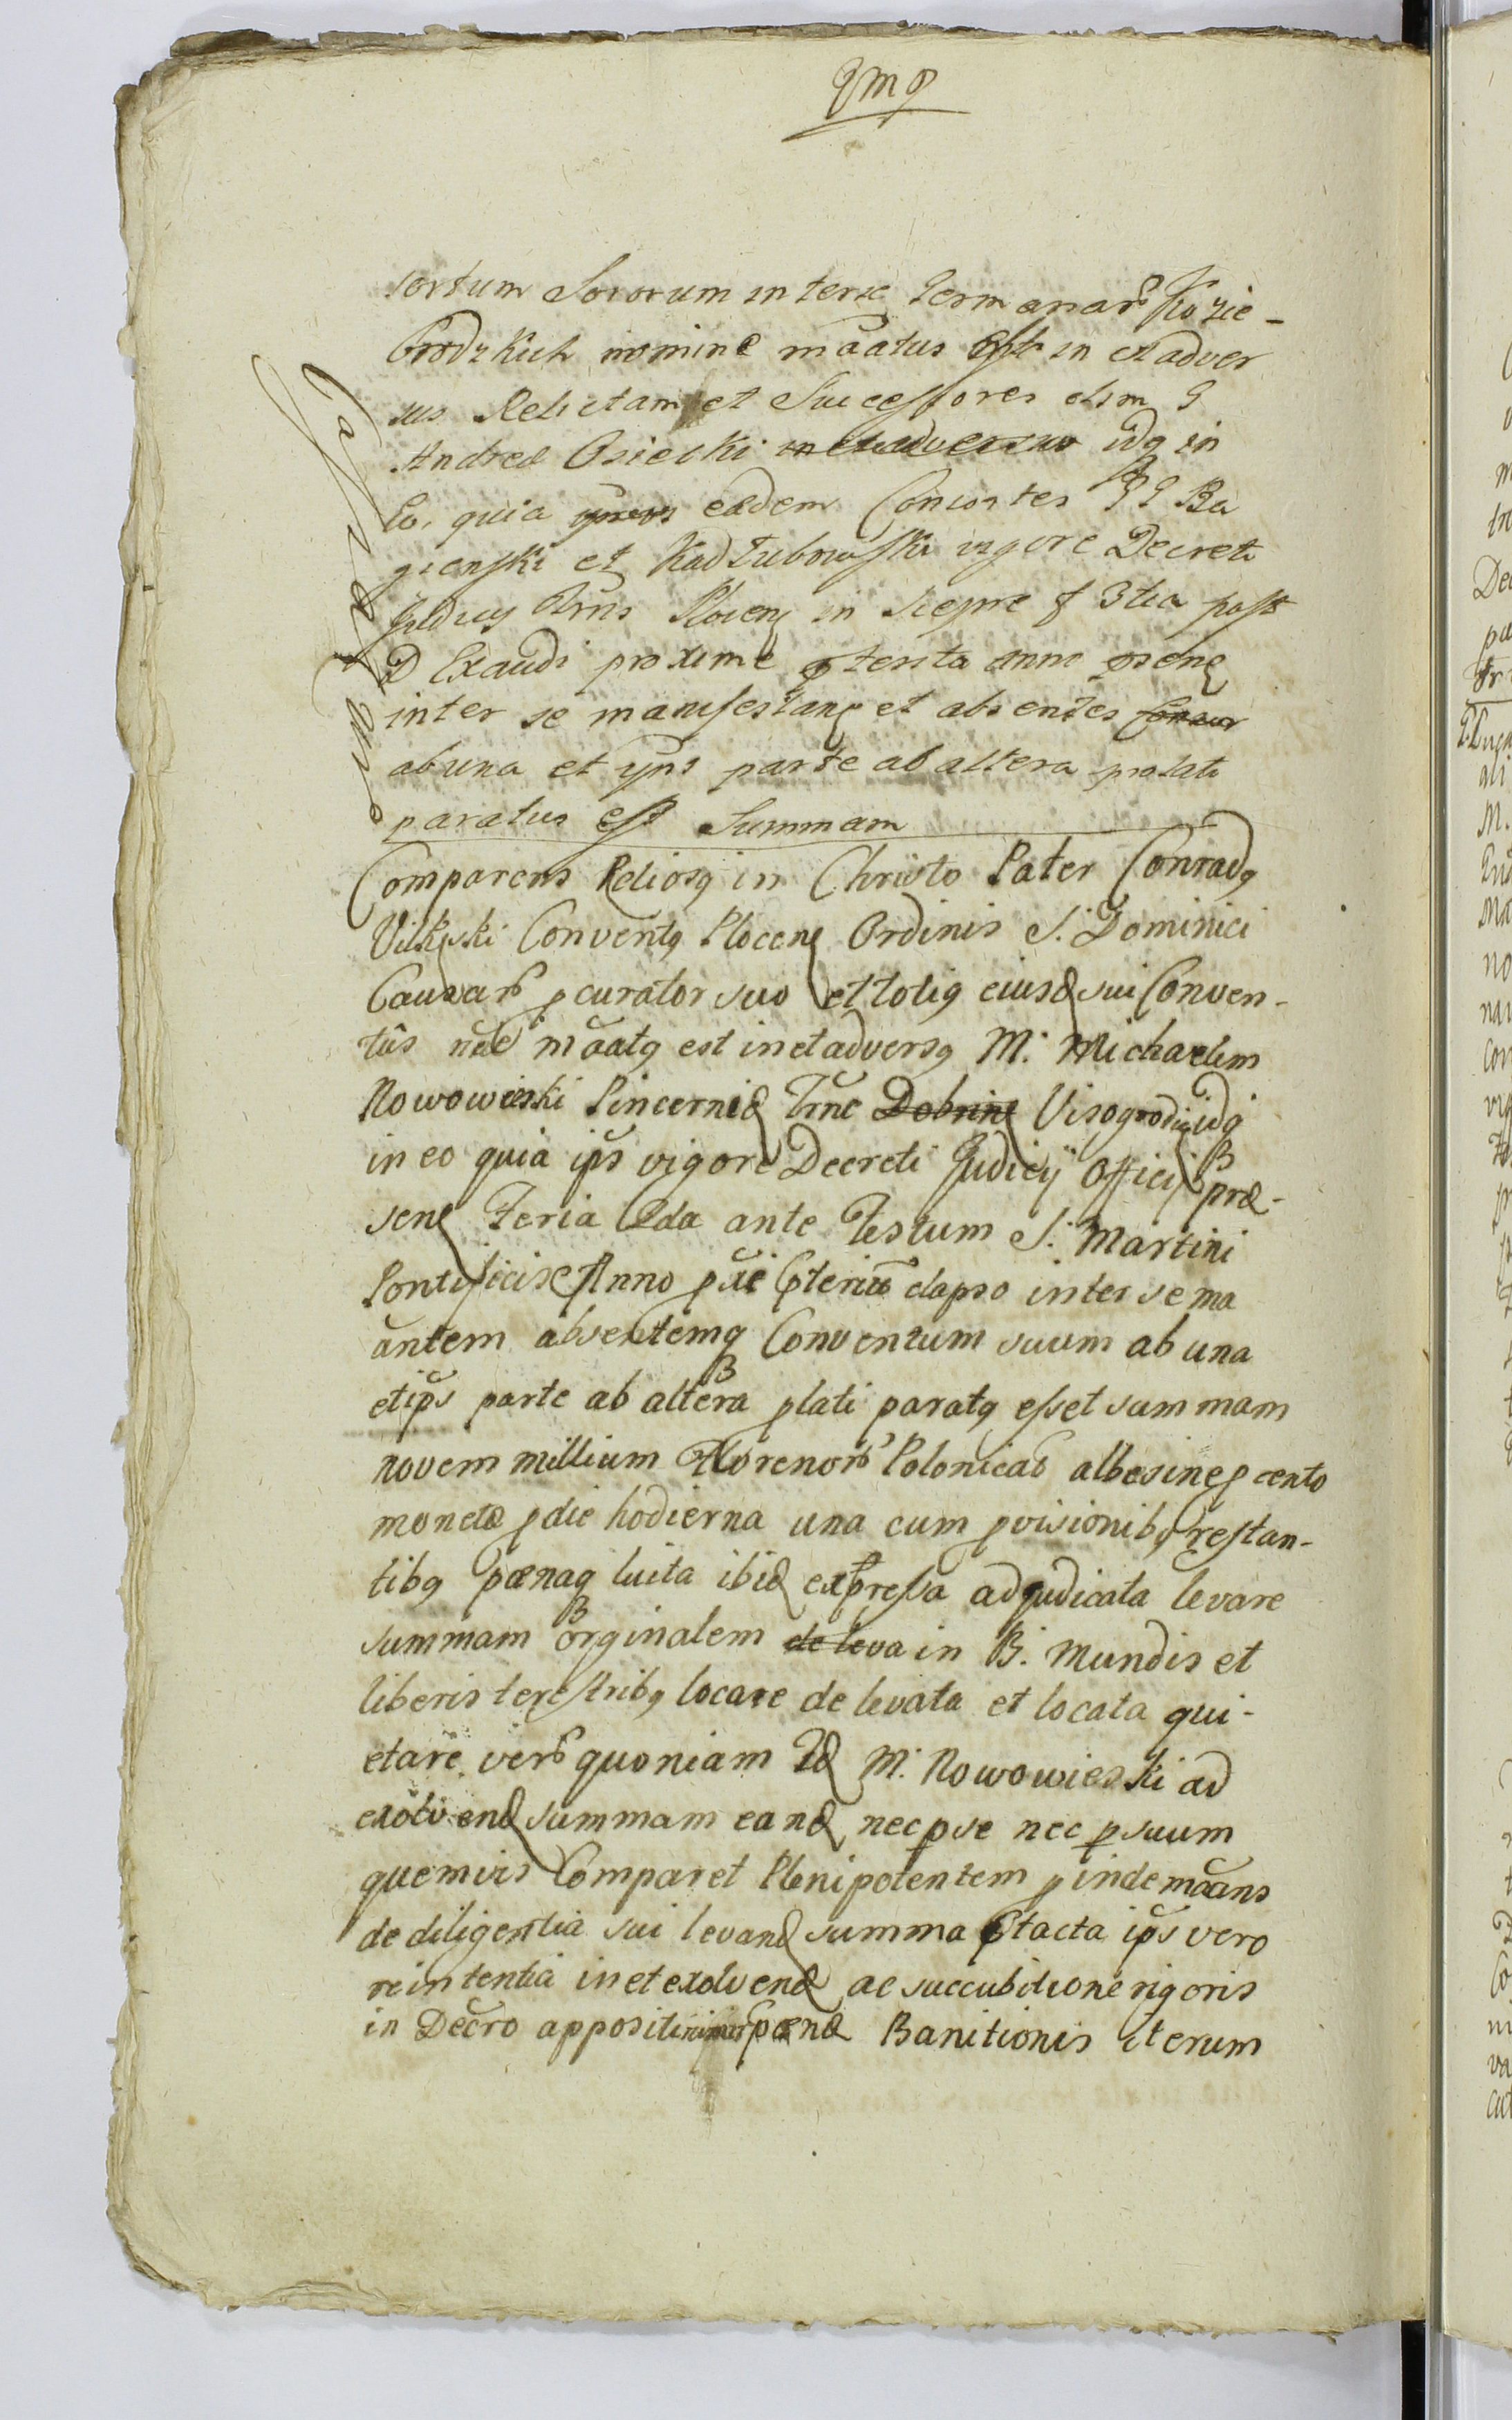 sortum Sororum interse Germanar Kozie-
Grodzkich nomine maatus est in et adver
sus Relictam et Successores olim G
Andreæ Osiecki in et adversus idq in
Eo, quia eædem Consortes GG Ba
gienski et Kadłubowski vigore Decreti
Judicij Trris Plocen in Sierpc f 3tia post
D Exaudi proxime pterita anno præsen
inter se manifestans et absentes Consor
ab una et ips parte ab altera prolati
paratus est Summam
Comparens Reliosq in Christo Pater Conradq
Conventq Plocen Ordinis S. Dominici
Causar pcurator suo et totiq eiusd sui Conven-
tûs nõe mãatq est in et adversq M. Michaelem
Nowowieski Pincernid Trnc Dobrin Visogrodien idq
in eo quia ips vigore Decreti Judicij Officij præ-
sen Feria 2da ante Festum S. Martini
Pontificis Anno pxe pterito elapso inter se ma
antem absentemq Conventum suum ab una
et ips parte ab altera plati paratq esset summam
novem millium Florenor Polonical albesine p cento
monetæ p die hodierna una cum pvisionibq restan-
tibq pænaq luita ibid expressa adjudicata levare
summam orginalem de leva in B. Mundis et
liberis terestribq locare de levata et locata qui-
etare, ver quoniam Id M. Nowowieski ad
exolvend summam eand nec p se nec p suum
quemvis Comparet Plenipotentem p inde mãans
de diligentia sui levand summa ptacta ips vero
reintentia in et exolvend ac succubitione rigoris
in Decro appositi pænæ Banitionis iterum